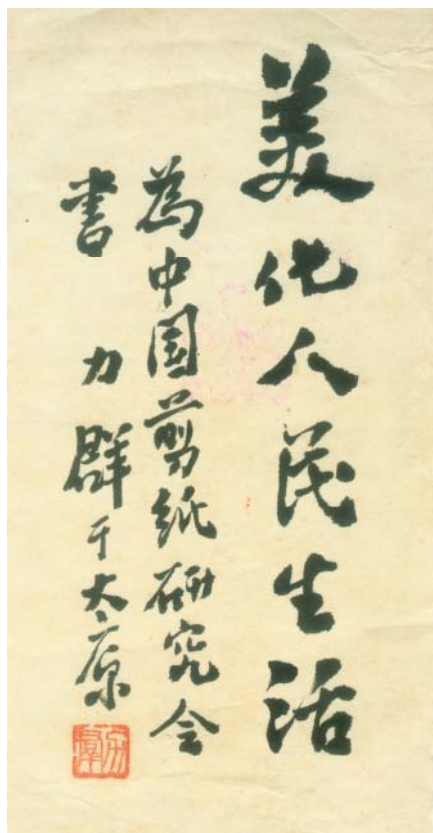 美化人民生活
為中国剪纸研究会
书 力群于太原